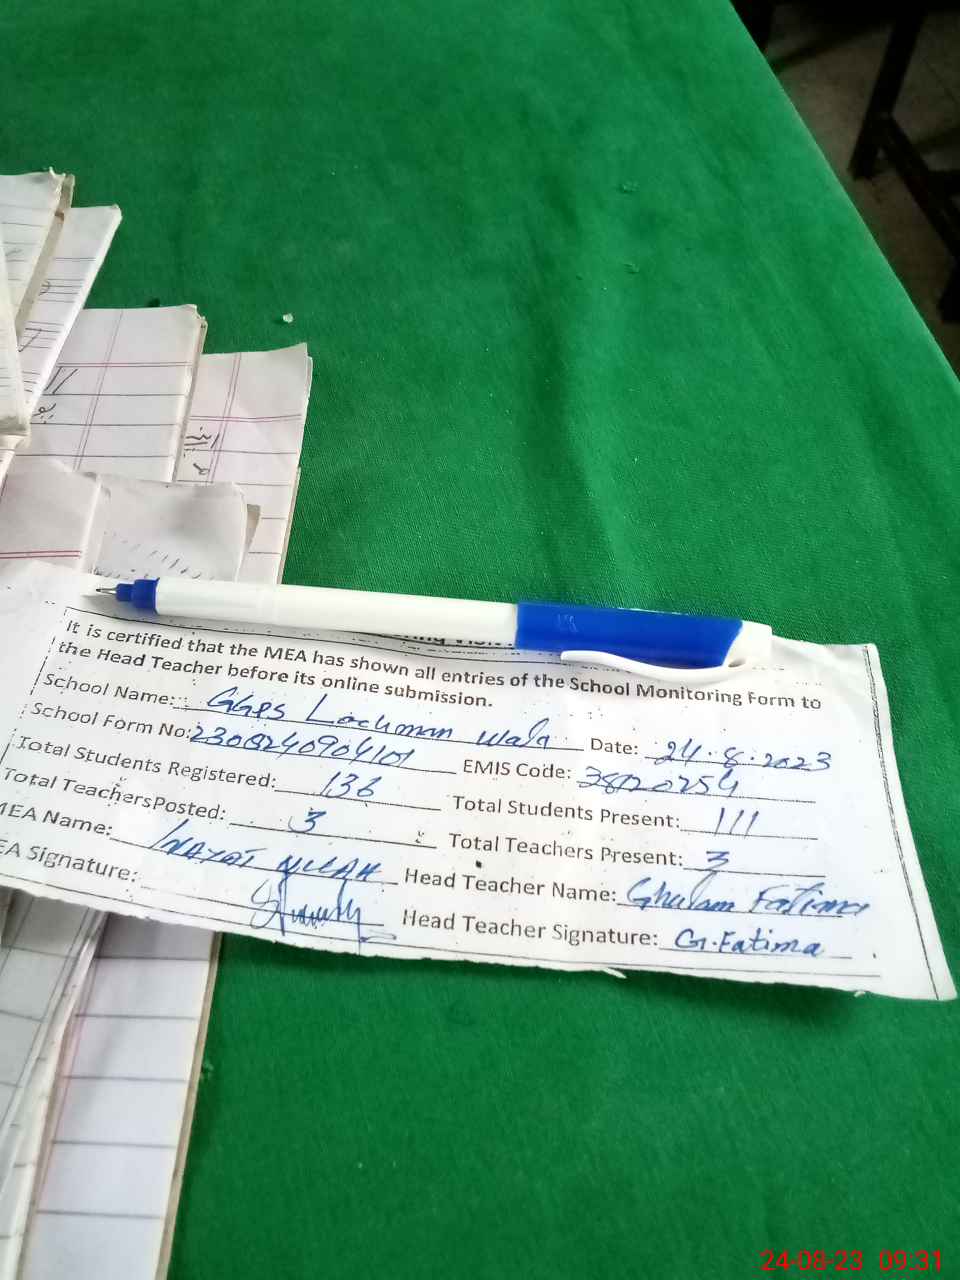 It is certified that the MEA has shown all entries of the School Monitoring Form to
the Head Teacher before its online submission.
School Name: GGPS Lachman wala Date: 24.8.2023
School Form No: 2308240904101 EMIS Code: 38120254
Total Students Registered: 136 Total Students Present: 111
Total Teachers Posted: 3 Total Teachers Present: 3
MEA Name: INAYAT ULLAH Head Teacher Name: Ghulam Fatima
EA Signature: Head Teacher Signature: G.Fatima
24-08-23 09:31